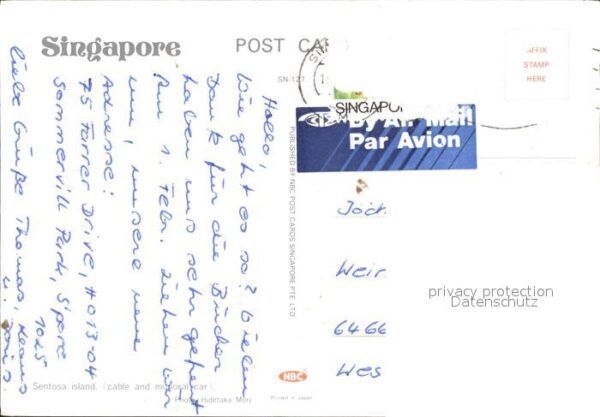 Singapore
POST CARD
SN-127
AFFIX
STAMP
HERE
SINGAPO
By Air Mail
Par Avion
PUBLISHED BY NBC POST CARDS SINGAPORE PTE LTD
Hallo,
wie geht es so? Vielen
Dank für die Bücher
haben uns sehr gefreut
Am 1. Febr. ziehen wir
um, unsere neue
Adresse:
75 Farrer Drive, #013-04
Sommervill Park, S'pore
1025
liebe Grüße Thomas, Klaus
u. Doris.
Joch
Weir
6466
Wes
privacy protection
Datenschutz
NBC
Sentosa island, (cable and musical car)
Photo Hidetaka Mori
Printed in Japan